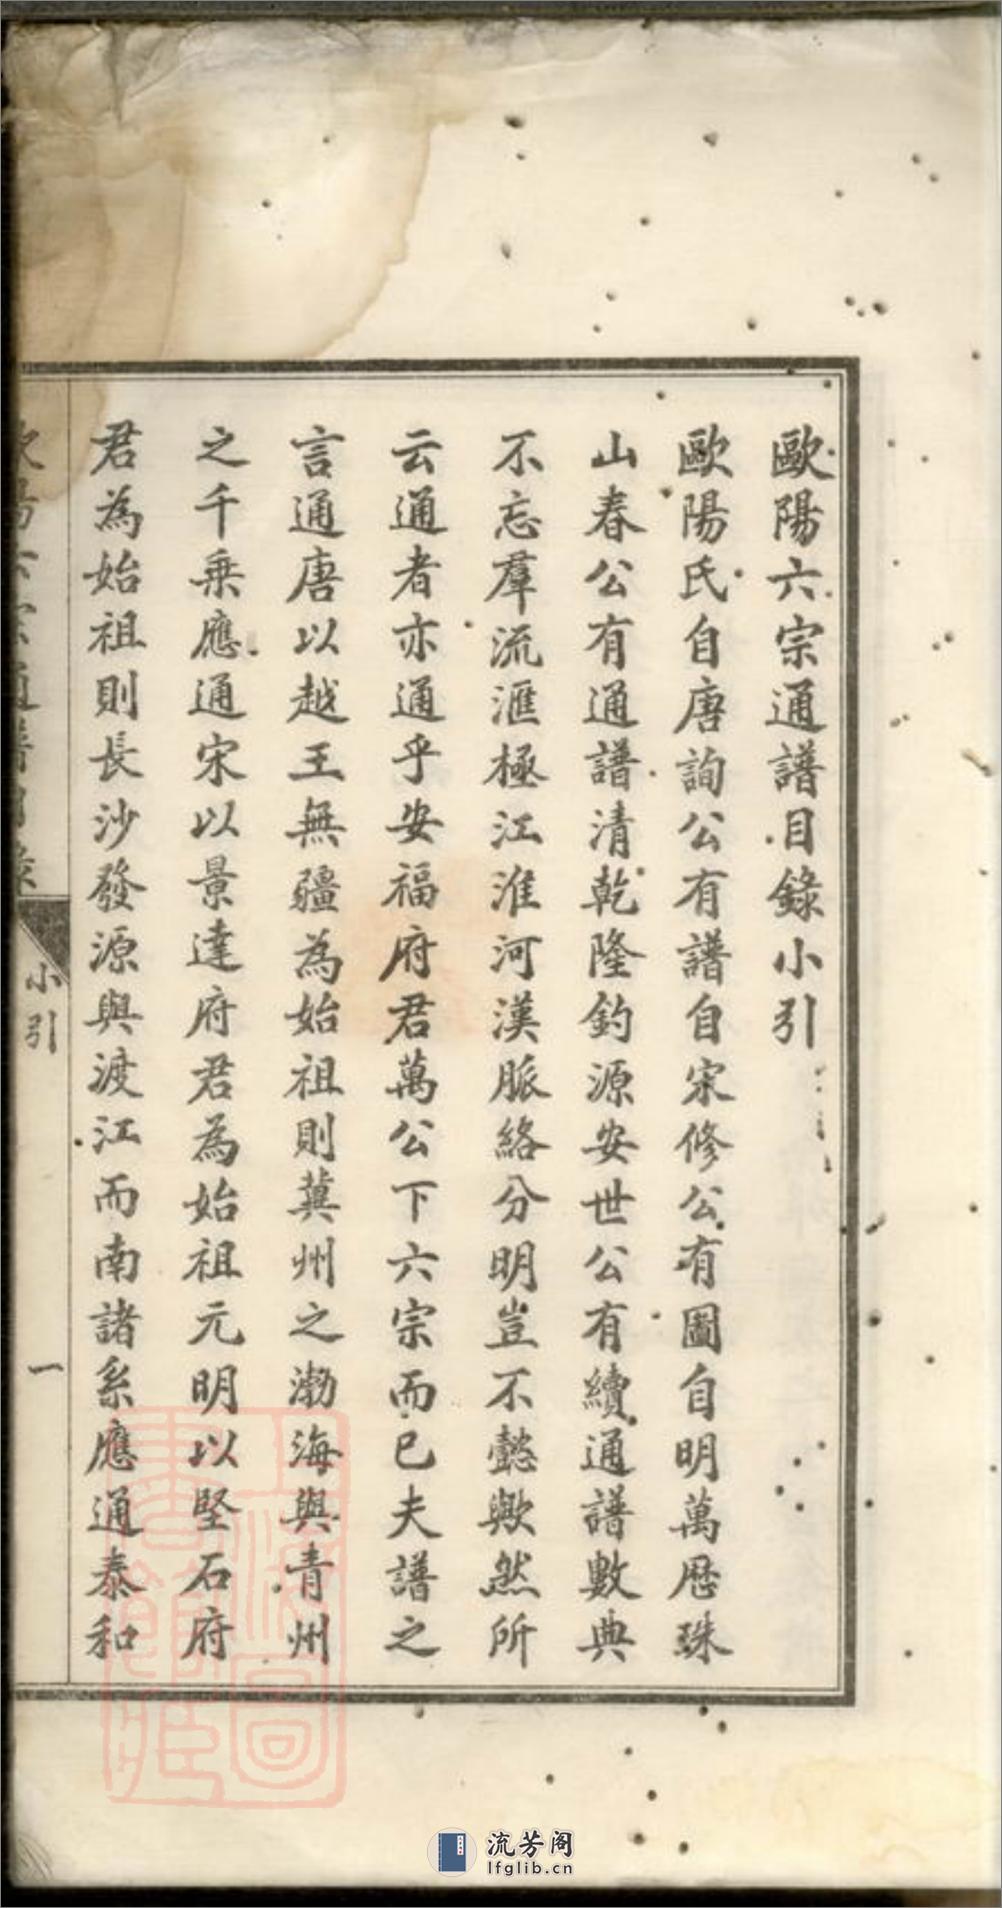 歐陽六宗通譜目錄小引
歐陽氏自唐詢公有譜自宋修公有圖自明萬歷珠
山春公有通譜清乾隆鈞源安世公有續通譜數典
不忘羣流滙極江淮河漢脈絡分明豈不懿歟然所
云通者亦通乎安福府君萬公下六宗而已夫譜之
言通唐以越王無疆為始祖則冀州之渤海與青州
之千乗應通宋以景達府君為始祖元明以堅石府
君為始祖則長沙發源與渡江而南諸系應通泰和
小引
一
上海圖書館藏
流芳阁
lfglib.cn